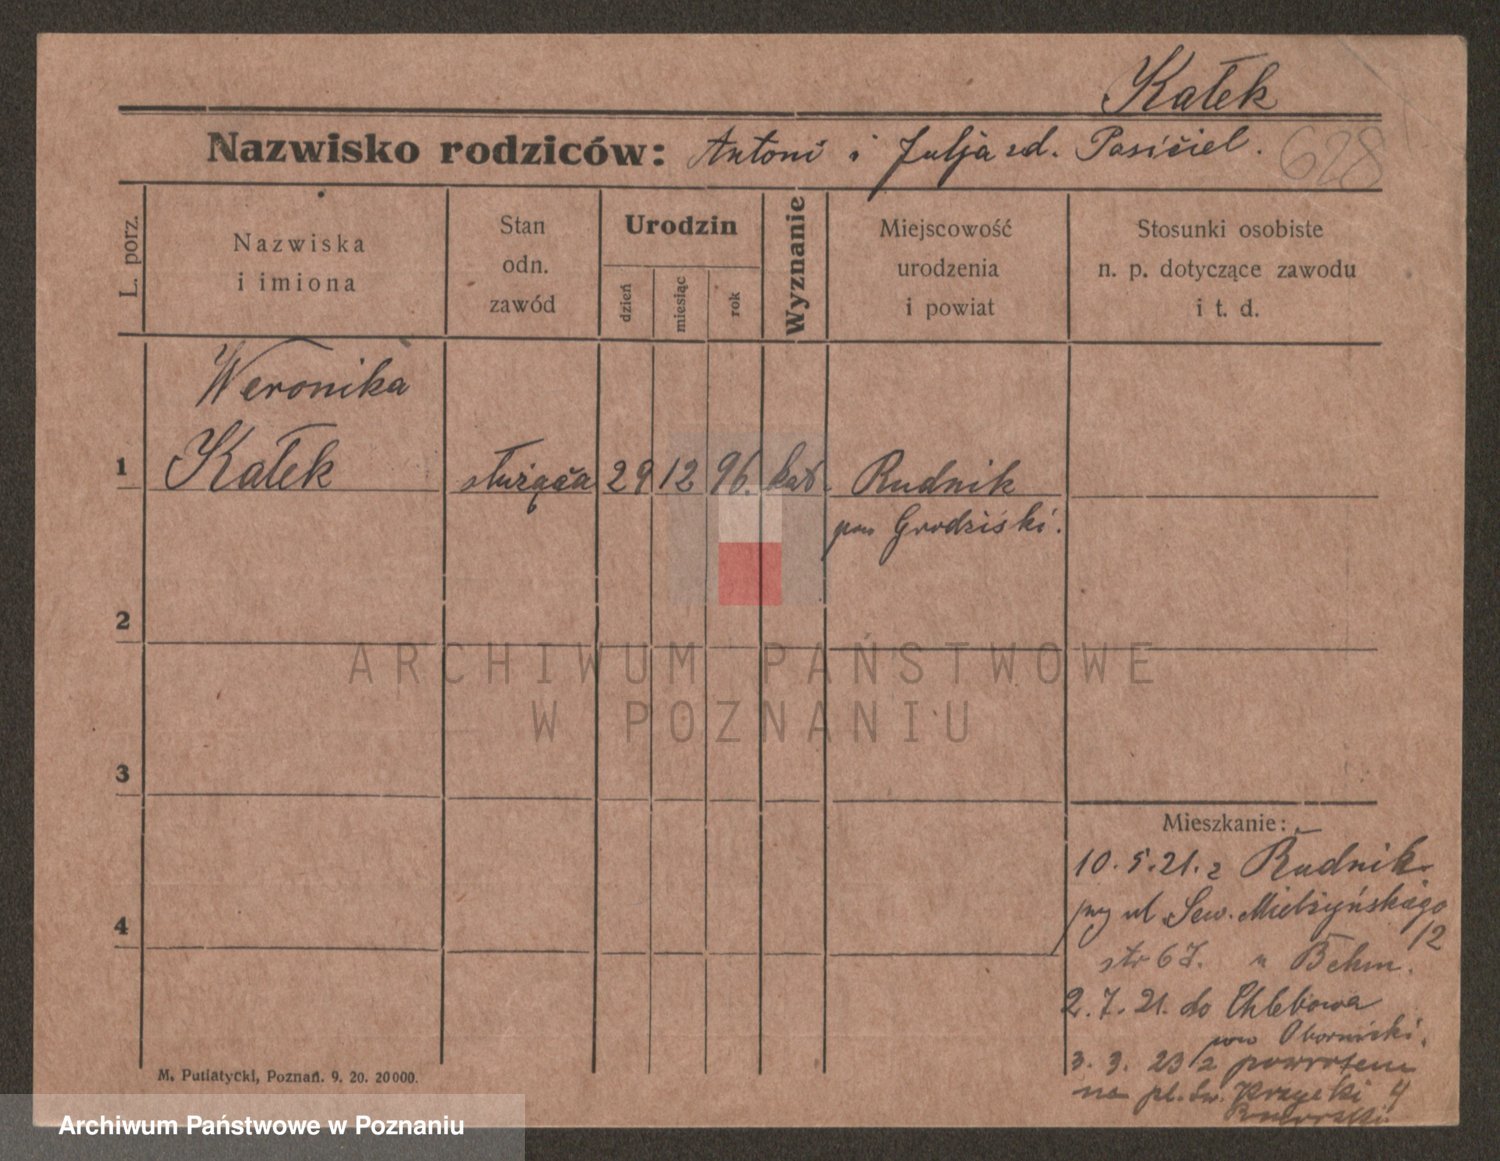 Kałek
Nazwisko rodziców: Antoni i Julja zd. Pasiciel.
628
L. porz.
Nazwiska
i imiona
Stan
odn.
zawód
Urodzin
dzień
miesiąc
rok
Wyznanie
Miejscowość
urodzenia
i powiat
Stosunki osobiste
n. p. dotyczące zawodu
i t. d.
Weronika
1 Kałek służąca 29 12 96. kat. Rudnik
pow Grodziski.
2
ARCHIWUM PAŃSTWOWE
W POZNANIU
3
4
Mieszkanie:
10.5.21. z Rudnik
przy ul Sew. Mielżyńskiego
12
str 67. u Behm.
2.7.21. do Chlebowa
pow Obornicki.
3.3.23 z powrotem
na pl. Św. Krzyski 4
M. Putiatycki, Poznań. 9. 20. 20000.
Archiwum Państwowe w Poznaniu